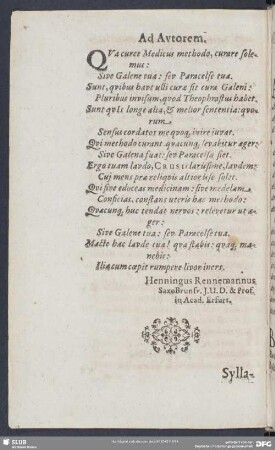 Ad Avtorem.
QVa curet Medicus methodo, curare sole-
mus:
Sive Galene tua: sev Paracelse tua.
Sunt, qvibus haut ulli cura sit cura Galeni:
Pluribus invisum, qvod Theophrastus habet.
Sunt qvis longè alia, & melior sententia: qvo-
rum
Sensus cordatos meqvoq, ivire juvat.
Qvi methodo curant qvacunq, levabitur æger:
Sive Galene fuat: sev Paracelse siet.
Ergo tuam lavdo, clarissime, lavdem:
Cui mens præ reliqvis altior isse solet.
Qvi sive edoceas medicinam: sive medelam
Conficias, constans uteris hac methodo:
Qvacunq, huc tendat nervos: relevetur ut æ-
ger:
Sive Galene tua: sev Paracelse tua.
Macte hac lavde tua! qva stabis: qvaq, ma-
nebis:
Iliacum capit rumpere livor iners.
Henningus Rennemannus
SaxoBrunsv. J.U.D. & Prof.
in Acad. Erfurt.
Sylla-
SLUB
DFG